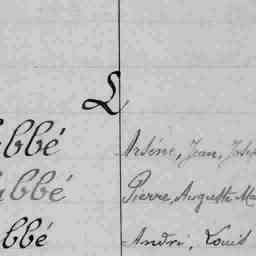 L
abbé Arsène, Jean, Josep
abbé Pierre, Auguste Ma
abbé André, Louis